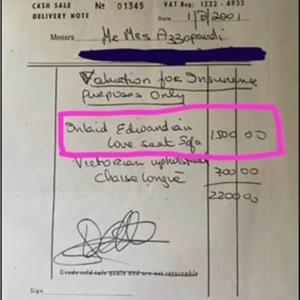 CASH SALE No 01345 VAT Reg: 1222 - 4935
DELIVERY NOTE Date 2001
Messrs Mr Mrs Azzopardi
Valuation for Insurance
purposes Only
Inlaid Edwardian
love seat Sofa 1500 00
Victorian upholstery
Chaise longue 700 00
2200 00
Goods sold sale quale and are not returnable
Sign